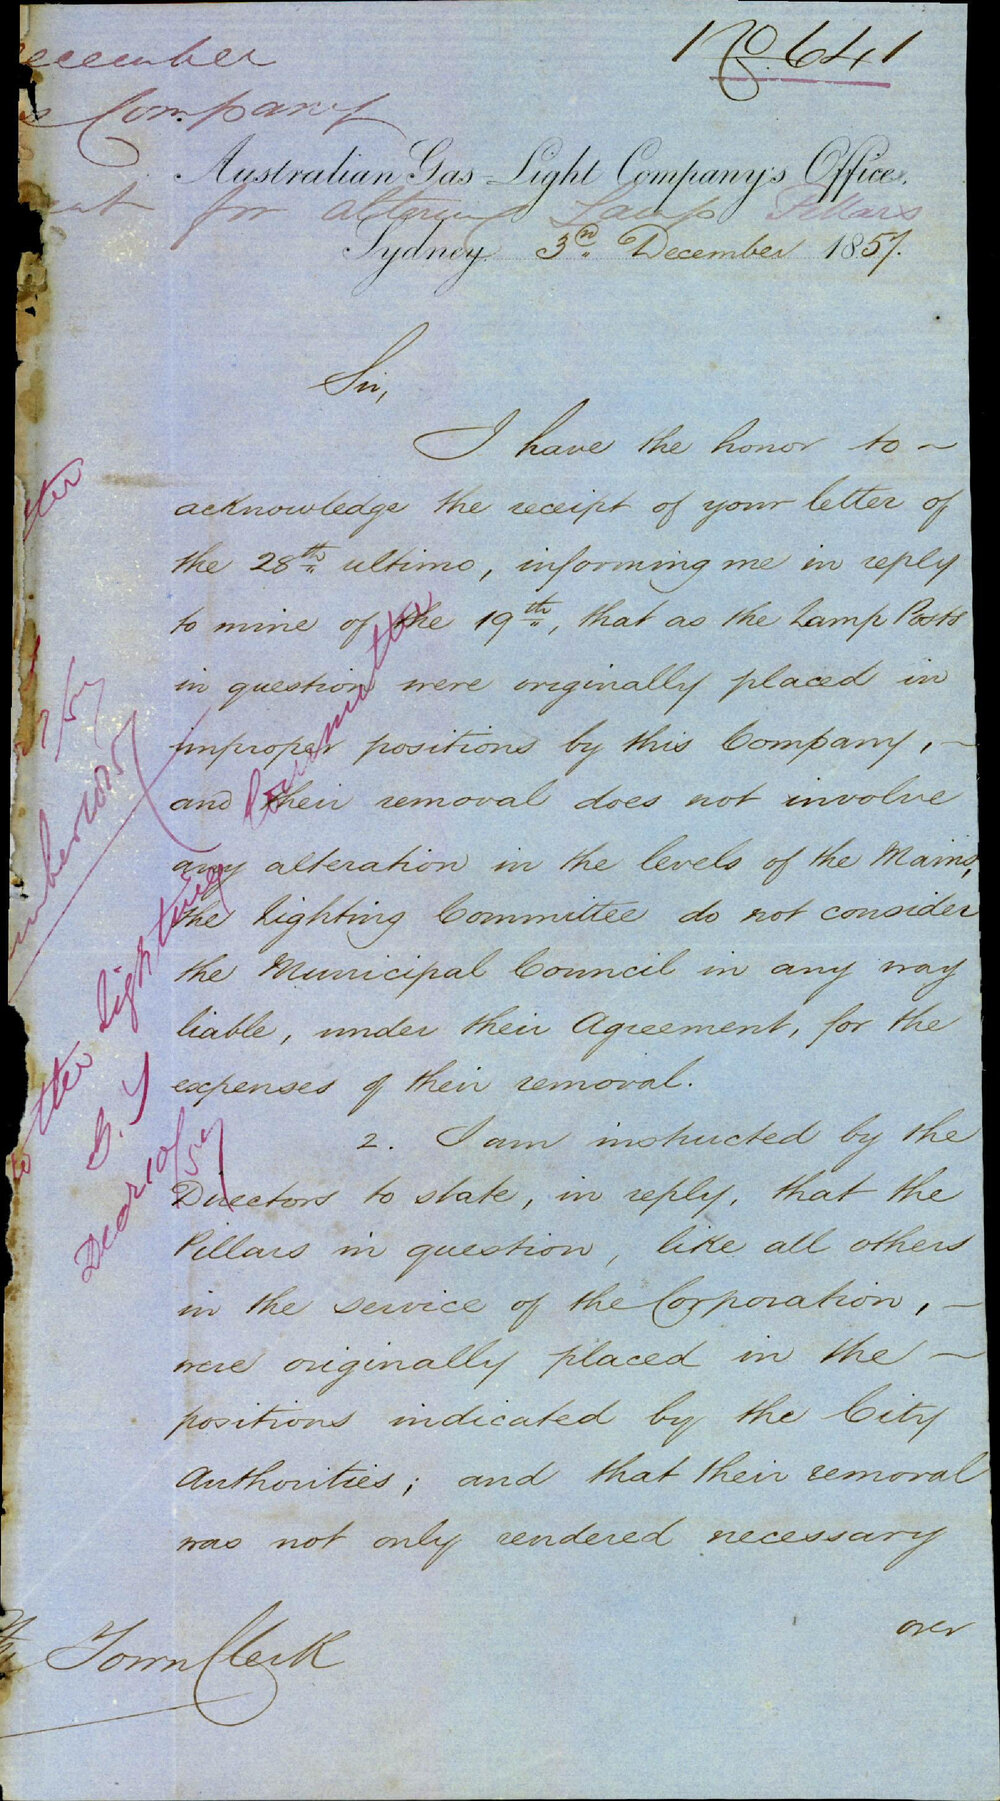 No 641
ecember
s Company
Australian Gas-Light Company's Office.
for altering Lamp Pillars
Sydney 3rd December 1857.
Sir,
I have the honor to ~
acknowledge the receipt of your letter of
the 28th ultimo, informing me in reply
to mine of the 19th, that as the Lamp Posts
in question were originally placed in
improper positions by this Company, ~
and their removal does not involve
any alteration in the levels of the Mains,
the Lighting Committee do not consider
the Municipal Council in any way
liable, under their Agreement, for the
expenses of their removal.
2. I am instructed by the
Directors to state, in reply, that the
Pillars in question, like all others
in the service of the Corporation, ~
were originally placed in the ~
positions indicated by the City
Authorities; and that their removal
was not only rendered necessary
over
Town Clerk
tter
to the Lighting Committee
Decr 10/57